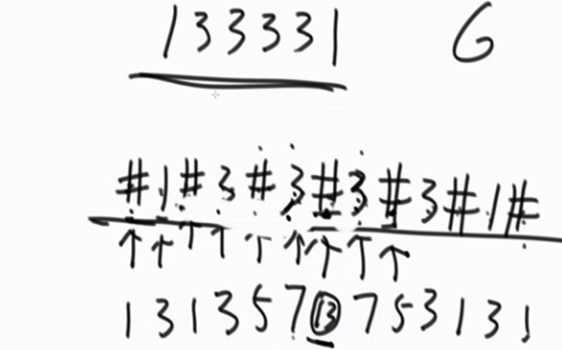 133331 6
#1#3#3#3#3#1#
1 3 1 3 5 7 13 7 5 3 1 3 1